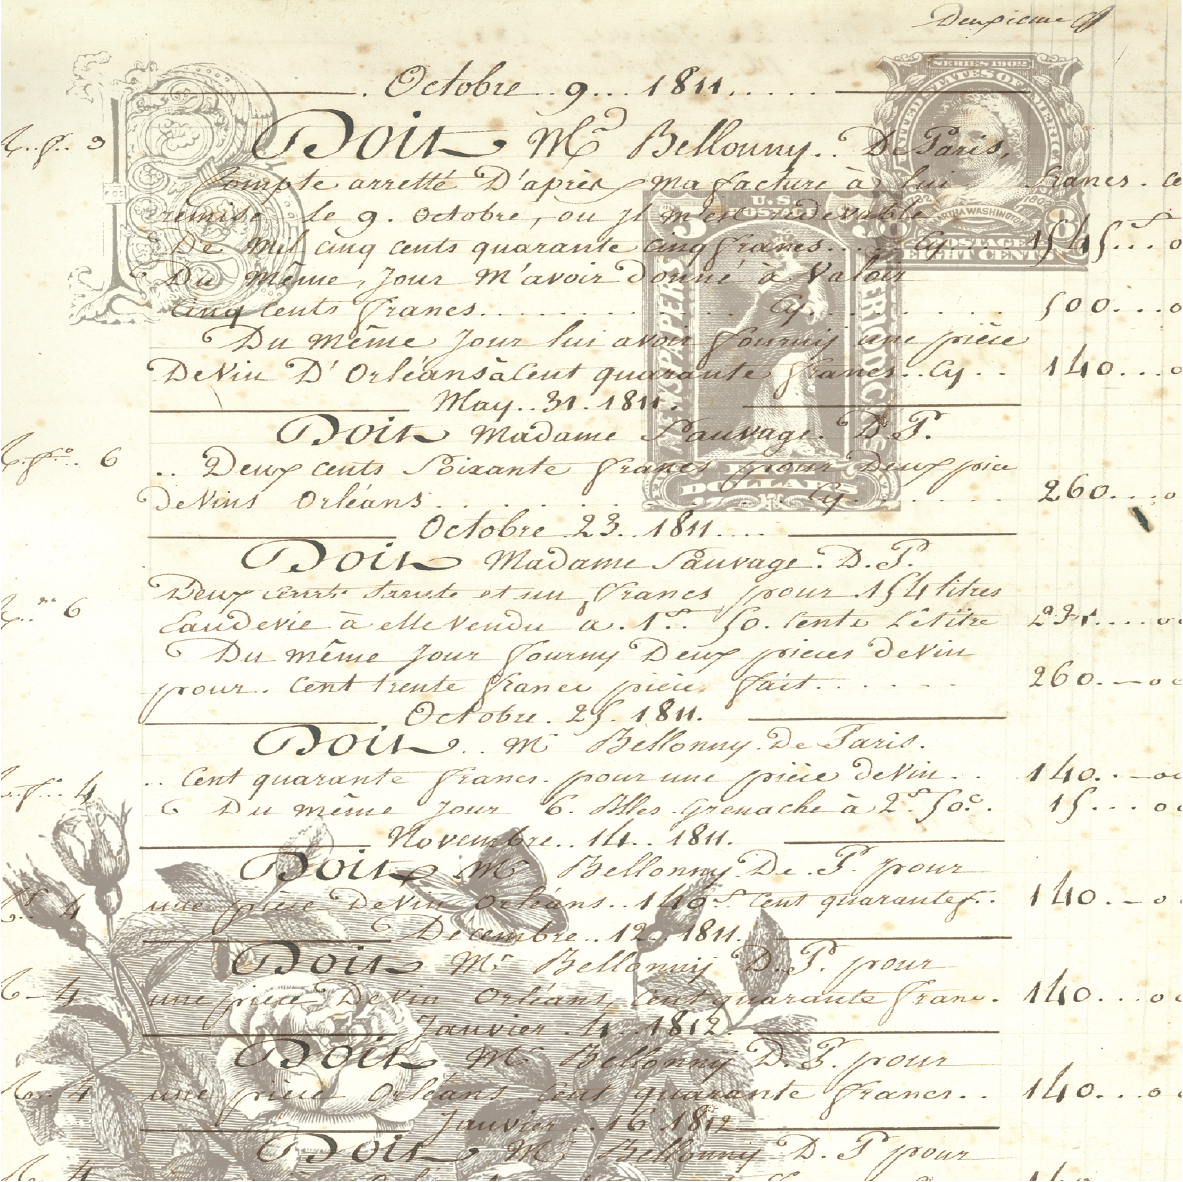 Deuxieme
Octobre 9 1811
Doit Mr Bellonny. De Paris,
Compte arretté D'aprés ma facture à lui francs. ce
remise le 9. Octobre, ou il m'est redevable
De mil cinq cents quarante cinq francs... Cy. 1545
Du même, Jour m'avoir donné à Valoir
Cinq cents francs... Cy... 500...0
Du même Jour lui avoir fourniy une pièce
De Vin D'Orléans à Cent quarante francs.. Cy.. 140...0
May. 31. 1811.
Doit Madame Sauvage. D. P.
6 .. Deux cents Soixante francs pour Deux pièce
de Vins Orléans... Cy... 260...0
Octobre 23. 1811...
Doit Madame Sauvage. D. P.
6 Deux cents trente et un francs pour 154 litres
Eaudevie à elle vendu a. 1f. 50. Cents Le litre 231....00
Du même Jour fourny Deux pieces de Vin
pour. Cent trente francs pièce fait... 260.-00
Octobre. 25. 1811.
Doit.. Mr Bellonny. De Paris.
4 .. Cent quarante francs. pour une pièce de Vin.. 140.-00
Du même Jour 6. Blles. Grenache à 2f 50c. 15...0
Novembre.. 14.. 1811.
Doit Mr Bellonny. De. P pour
4 une pièce De Vin Orléans.. 140f Cent quarante f.. 140.-0
Decembre.. 12. 1811.
Doit Mr Bellonny D. P. pour
4 une pièce De Vin Orléans, Cent quarante franc. 140...00
Janvier. 4. 1812
Doit Mr Bellonny D. P pour
4 une pièce Orléans Cent quarante francs.. 140...00
Janvier.. 16 1812
Doit Mr Bellonny D. P pour
4
SERIES 1902
UNITED STATES OF AMERICA
MARTHA WASHINGTON
POSTAGE
EIGHT CENTS
U.S.
POSTAGE
NEWSPAPERS
PERIODICALS
DOLLARS